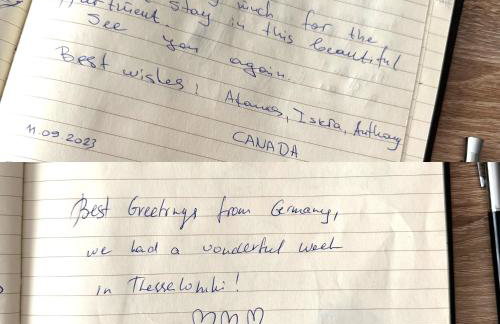 much for the
stay in this beautiful
apartment.
See you again.
Best wishes, Atanas, Iskra, Anthony
11.09 2023
CANADA
Best Greetings from Germany,
we had a wonderful week
in Thessaloniki!